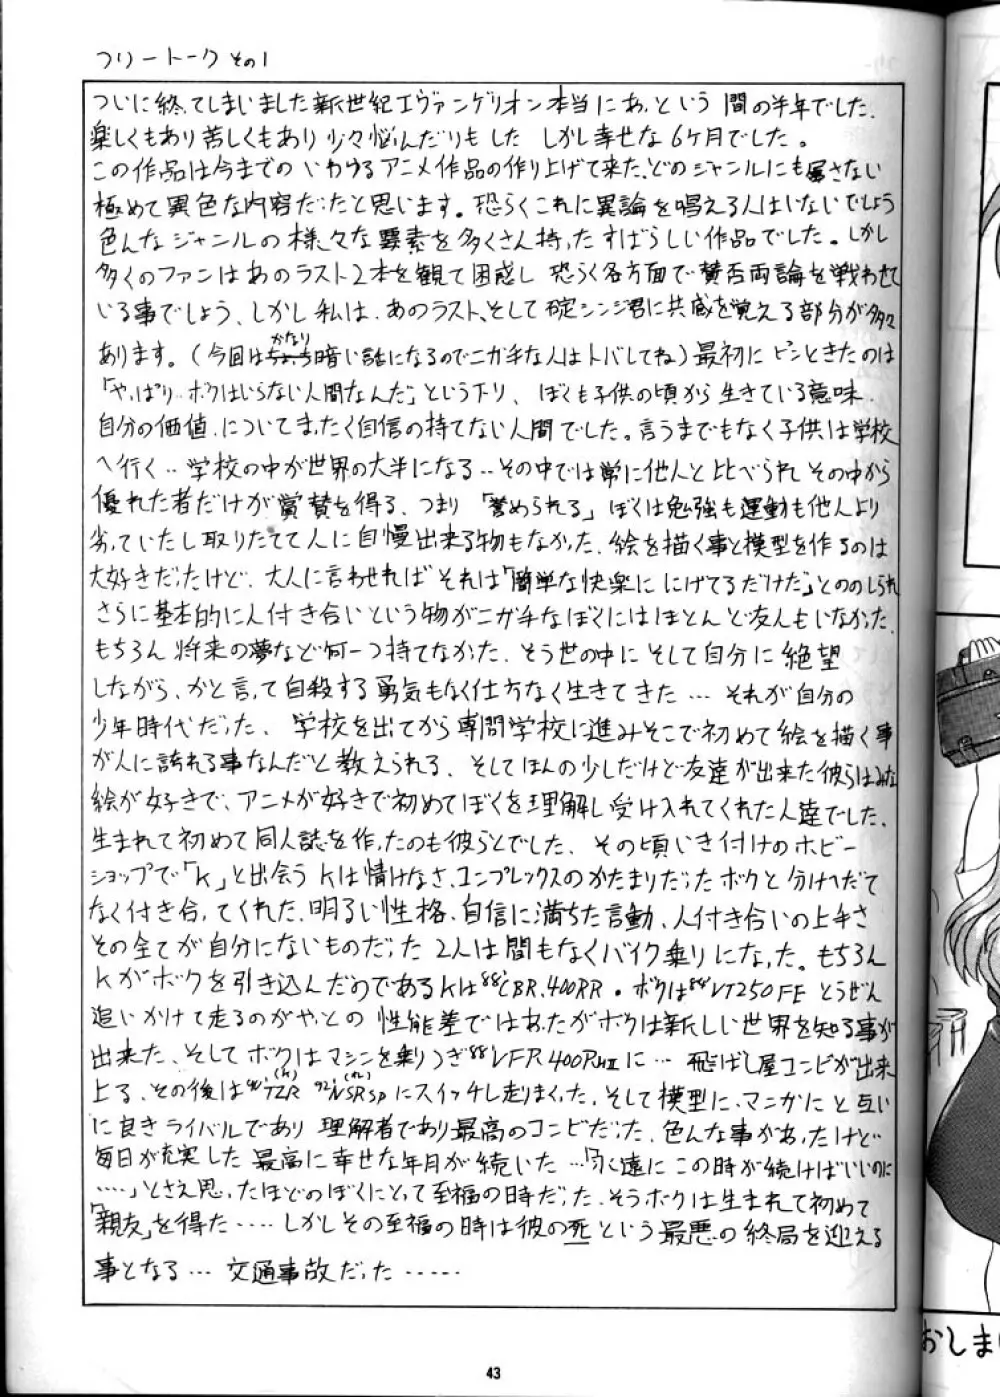 フリートーク その1
ついに終ってしまいました新世紀エヴァンゲリオン本当にあっという間の半年でした.
楽しくもあり苦しくもあり少々悩んだりもした しかし幸せな6ケ月でした。
この作品は今までのいわゆるアニメ作品の作り上げて来た、どのジャンルにも属さない
極めて異色な内容だったと思います。恐らくこれに異論を唱える人はいないでしょう
色んなジャンルの様々な要素を多くさん持ったすばらしい作品でした。しかし
多くのファンはあのラスト2本を観て困惑し 恐らく各方面で賛否両論を戦わせて
いる事でしょう、しかし私は、あのラスト、そして碇シンジ君に共感を覚える部分が多々
あります。(今回はかなり暗い話になるのでニガ手な人はトバしてね)最初にピンときたのは
「やっぱり‥ボクはいらない人間なんだ」という下り、ぼくも子供の頃から生きている意味.
自分の価値.についてまったく自信の持てない人間でした。言うまでもなく子供は学校
へ行く‥学校の中が世界の大半になる‥その中では常に他人と比べられその中から
優れた者だけが賞賛を得る、つまり「誉められる」ぼくは勉強も運動も他人より
劣っていたし取りたてて人に自慢出来る物もなかった.絵を描く事と模型を作るのは
大好きだったけど、大人に言わせればそれは「簡単な快楽ににげてるだけだ」とののしられ
さらに基本的に人付き合いという物がニガ手なぼくにはほとんど友人もいなかった.
もちろん将来の夢など何一つ持てなかった、そう世の中にそして自分に絶望
しながら、かと言って自殺する勇気もなく仕方なく生きてきた…それが自分の
少年時代だった、学校を出てから専門学校に進みそこで初めて絵を描く事
が人に誇れる事なんだと教えられる、そしてほんの少しだけど友達が出来た彼らはみな
絵が好きで、アニメが好きで初めてぼくを理解し受け入れてくれた人達でした、
生まれて初めて同人誌を作ったのも彼らとでした、その頃いき付けのホビー
ショップで「K」と出会うKは情けなさ、コンプレックスのかたまりだったボクと分けへだて
なく付き合ってくれた、明るい性格、自信に満ちた言動、人付き合いの上手さ
その全てが自分にないものだった 2人は間もなくバイク乗りになった。もちろん
Kがボクを引き込んだのであるKは'88CBR.400RR・ボクは'88VT250FEとうぜん
追いかけて走るのがやっとの性能差ではあったがボクは新しい世界を知る事が
出来た、そしてボクはマシンを乗りつぎ'88VFR400RⅢに…飛ばし屋コンビが出来
上る、その後は'90TZR(K) '92NSRSPにスイッチし走りまくった、そして模型に、マンガにと互い
に良きライバルであり 理解者であり最高のコンビだった、色んな事があったけど
毎日が充実した最高に幸せな年月が続いた…「永遠にこの時が続けばいいのに
‥‥」とさえ思ったほどのぼくにとって至福の時だった、そうボクは生まれて初めて
「親友」を得た‥‥しかしその至福の時は彼の死という最悪の終局を迎える
事となる…交通事故だった‥‥‥
43
おしまい